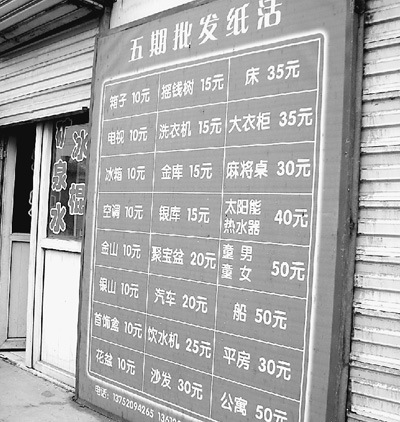 五期批发纸活
箱子 10元 摇钱树 15元 床 35元
电视 10元 洗衣机 15元 大衣柜 35元
冰箱 10元 金库 15元 麻将桌 30元
空调 10元 银库 15元 太阳能 40元
热水器
金山 10元 聚宝盆 20元 童男 50元
童女
银山 10元 汽车 20元 船 50元
首饰盒 10元 饮水机 25元 平房 30元
花盆 10元 沙发 30元 公寓 50元
电话: 13752094265
矿泉水
冰棍